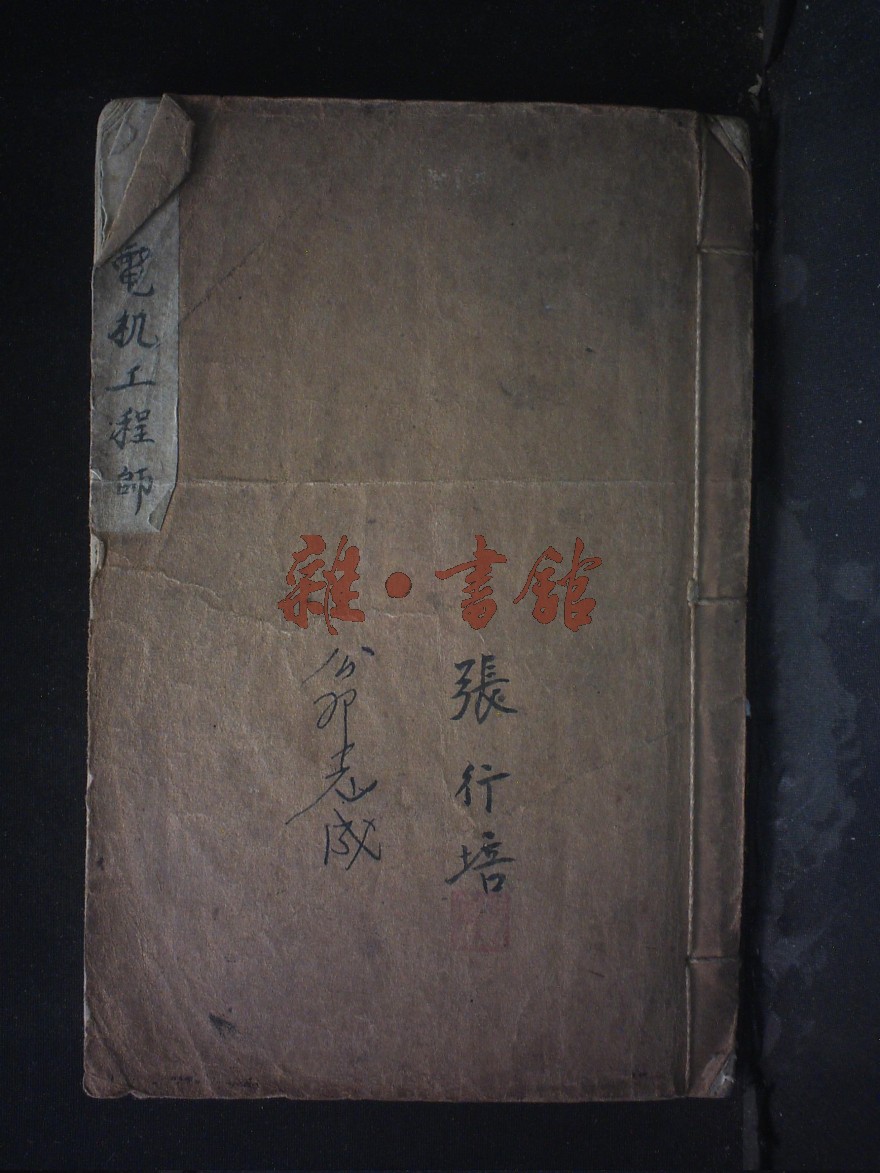 電机工程師
雜·書館
張行培
志成